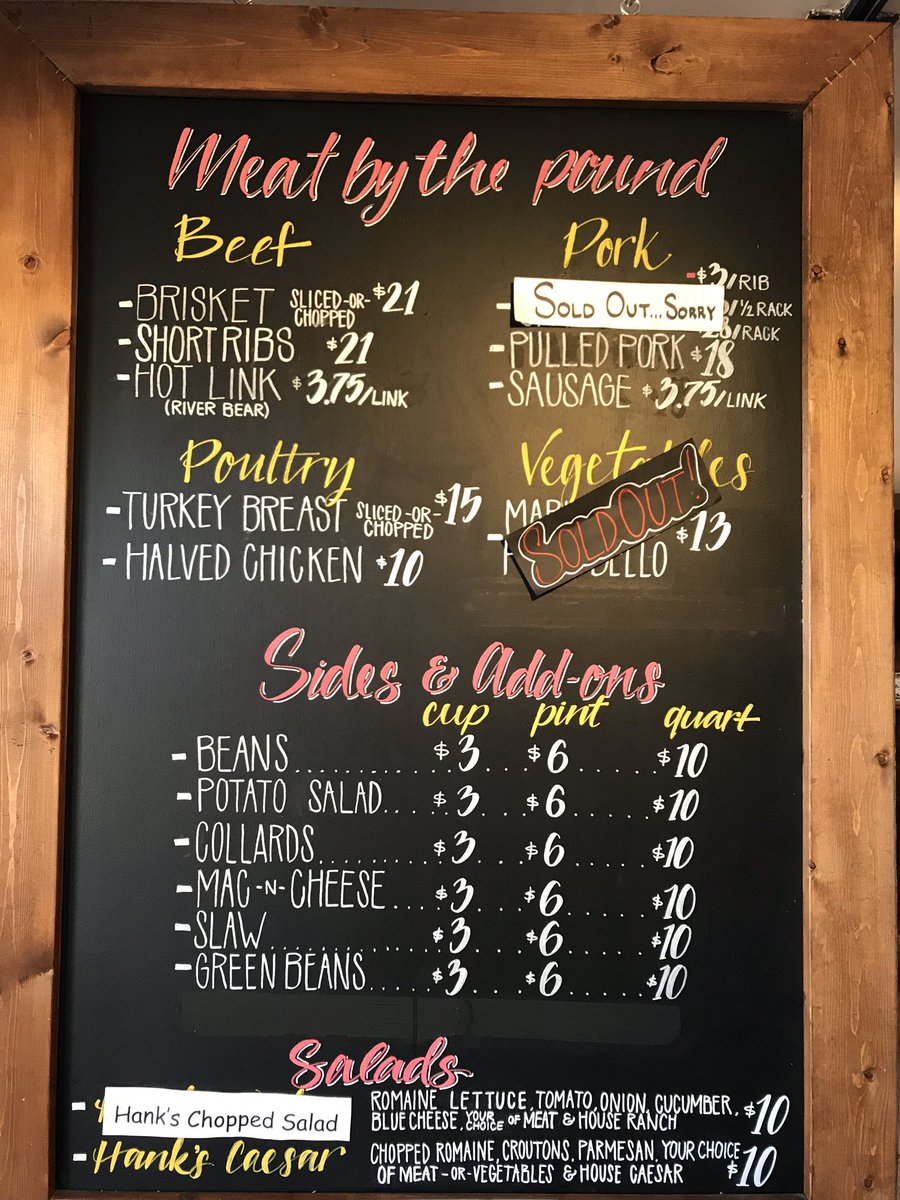 Meat by the pound
Beef
- BRISKET SLICED-OR-CHOPPED $21
- SHORT RIBS $21
- HOT LINK $3.75/LINK
(RIVER BEAR)
Pork
- $3/RIB
SOLD OUT...SORRY
1/2 RACK
/RACK
- PULLED PORK $18
- SAUSAGE $3.75/LINK
Poultry
- TURKEY BREAST SLICED-OR-CHOPPED $15
- HALVED CHICKEN $10
Vegetables
SOLD OUT!
$13
Sides & Add-ons
cup pint quart
- BEANS $3 $6 $10
- POTATO SALAD $3 $6 $10
- COLLARDS $3 $6 $10
- MAC-N-CHEESE $3 $6 $10
- SLAW $3 $6 $10
- GREEN BEANS $3 $6 $10
Salads
- Hank's Chopped Salad ROMAINE, LETTUCE, TOMATO, ONION, CUCUMBER,
BLUE CHEESE, YOUR CHOICE OF MEAT & HOUSE RANCH $10
- Hank's Caesar CHOPPED ROMAINE, CROUTONS, PARMESAN, YOUR CHOICE
OF MEAT -OR- VEGETABLES & HOUSE CAESAR $10